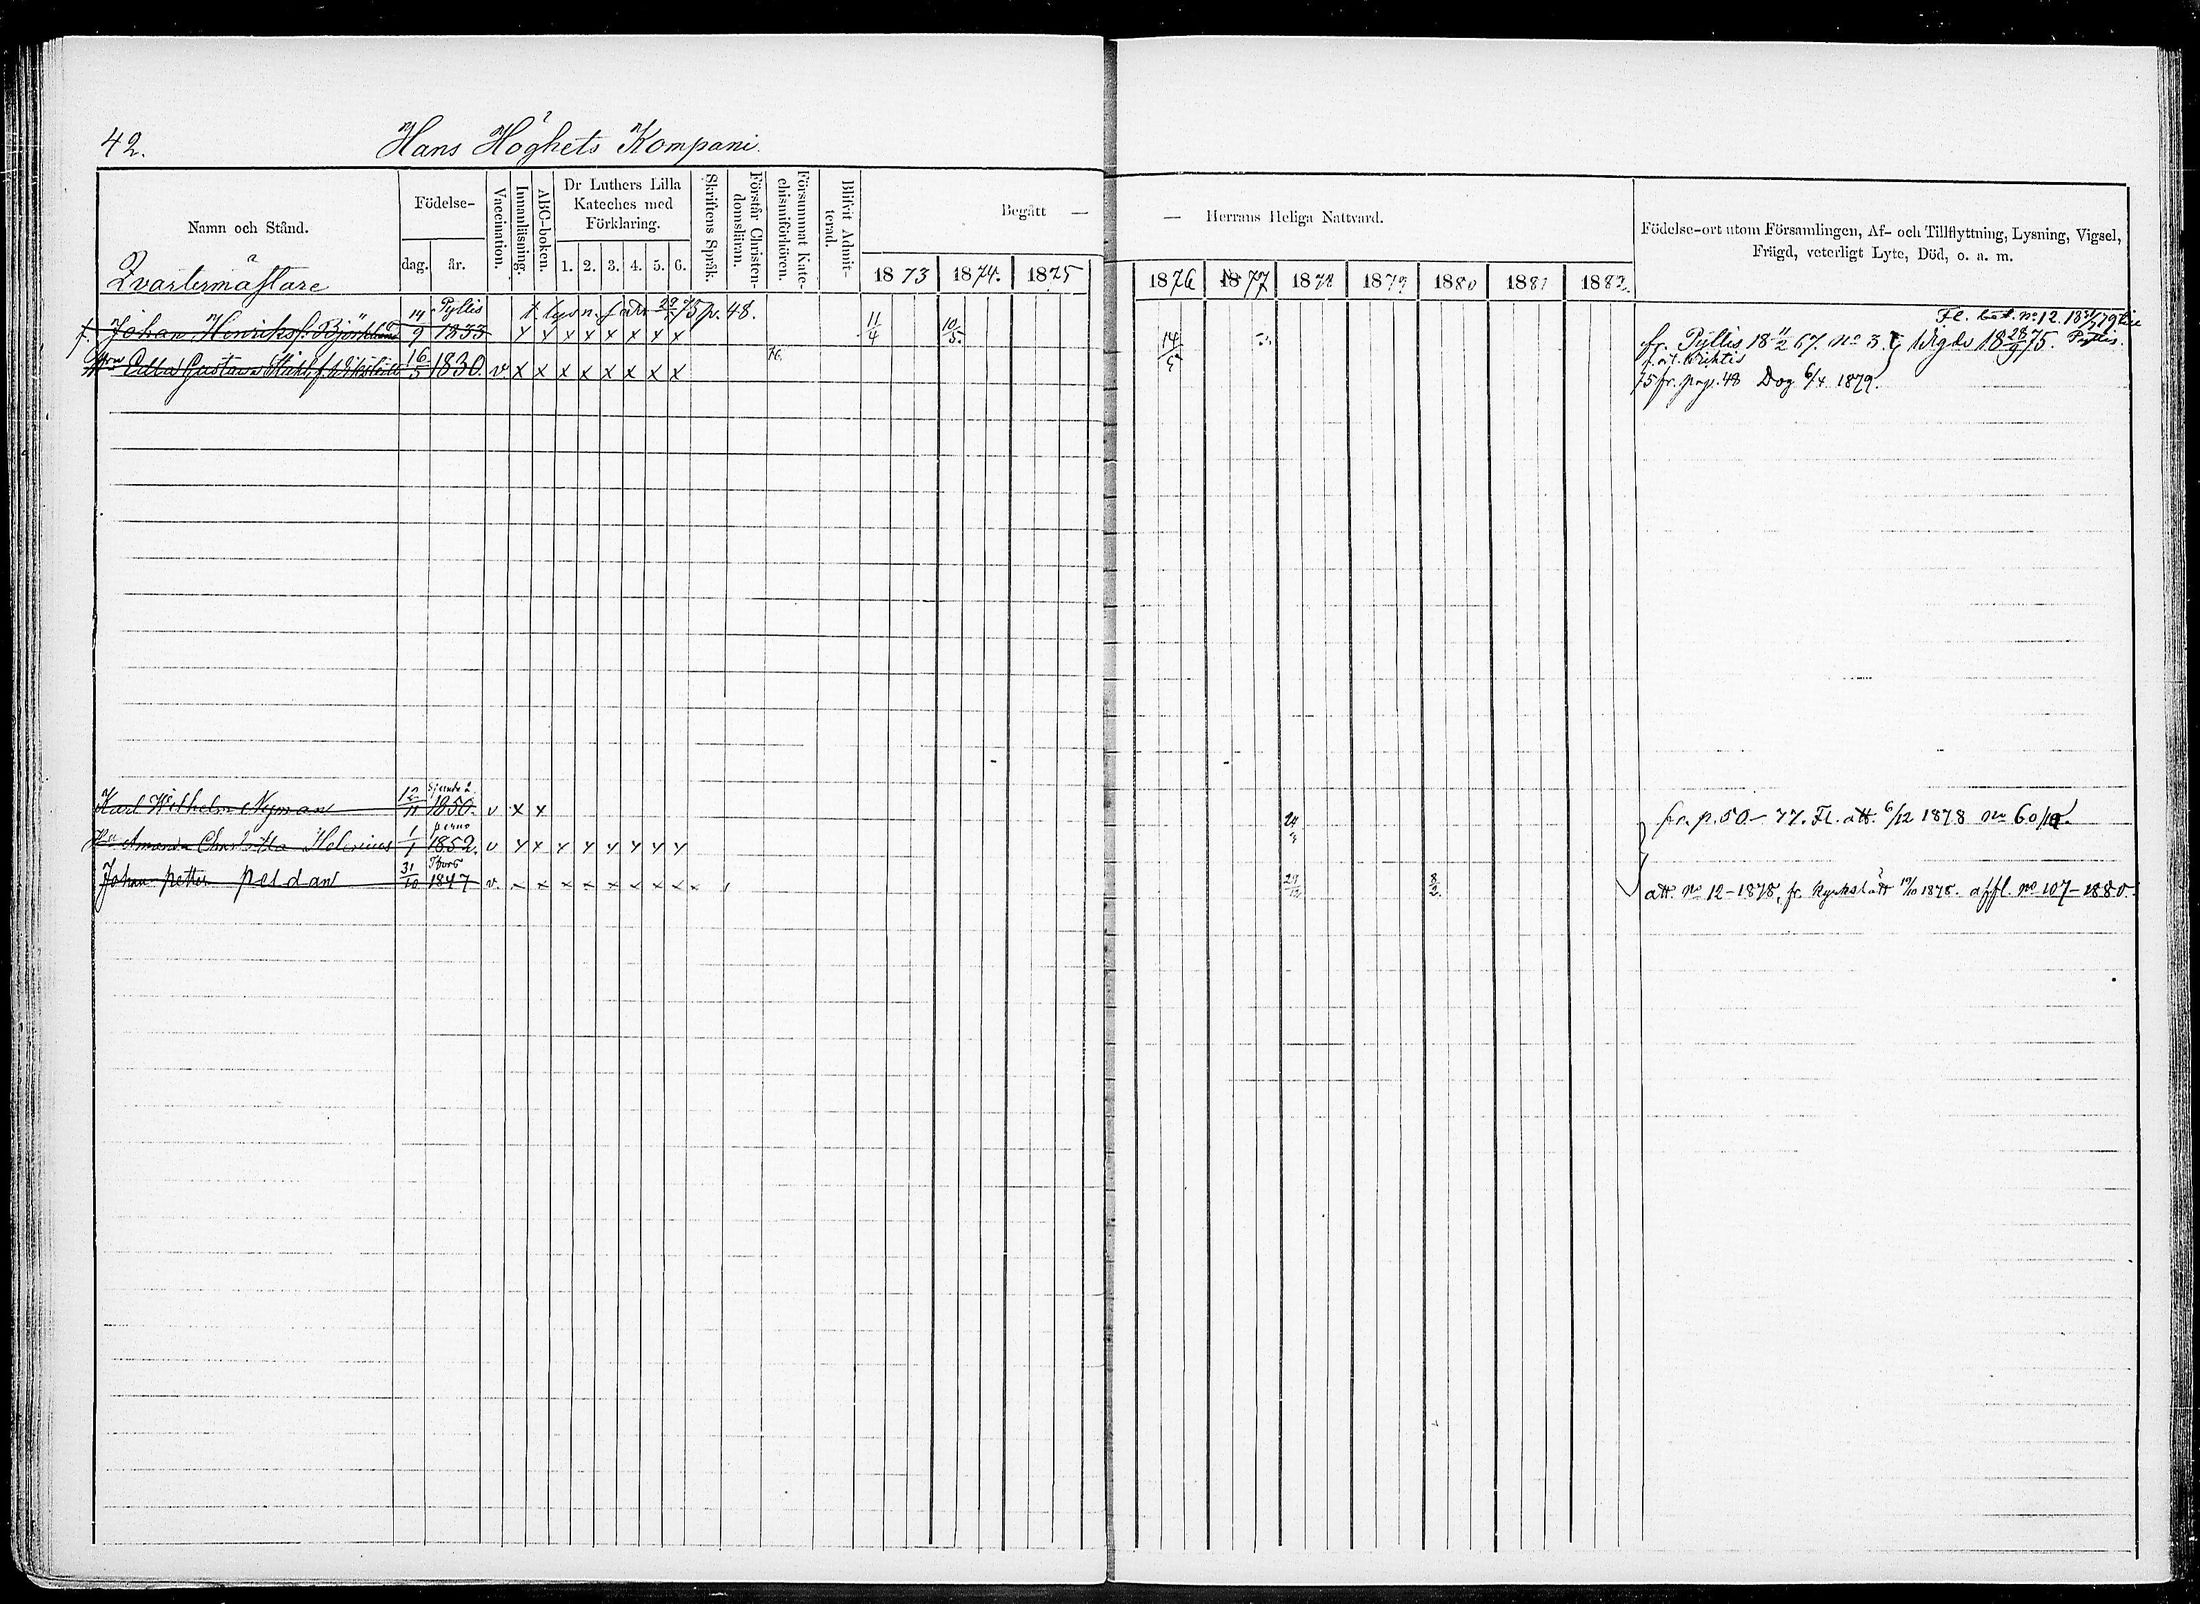 42. Hans Höghets Kompani.
Namn och Stånd.
Qvartermästare
Födelse-
dag. år.
Vaccination.
Innanläsning.
ABC-boken.
Dr Luthers Lilla
Kateches med
Förklaring.
1. 2. 3. 4. 5. 6.
Skriftens Språk.
Förstår Christen-
domsläran.
Försummat Kate-
chismiförhören.
Blifvit Admit-
terad.
Begått — — Herrans Heliga Nattvard.
1873 1874. 1875 1876 1877 1878 1879 1880 1881 1882.
Födelse-ort utom Församlingen, Af- och Tillflyttning, Lysning, Vigsel,
Frägd, veterligt Lyte, Död, o. a. m.
14 Pyttis p. 48. Fl. bet. No 12. 1879
f. Johan Henrikss. Björklund 9 1833 x x x x x x x x 11/4 10/5 fr. Pyttis 18 11/2 67. No 3. Vigds 18 28/9 75. Pyttis.
Gustava 16/5 1830 v x x x x x x x x 76. 14/5
75 fr. pag. 48 Dog 6/4 1879.
Karl Wilhelm Nyman 12/11 Sjundeå 1850. v x x 24 fr. p. 50 – 77. Fl. att. 6/12 1878 No 60
Hu Amanda Charlotta Holenius 1/1 perno 1852. v x x x x x x x x
Johan petter peldan 31/10 1847 v. x x x x x x x x x 29 8/2. att. No 12 – 1878, fr. Kyrkslätt 1878. affl. No 107 – 1880.